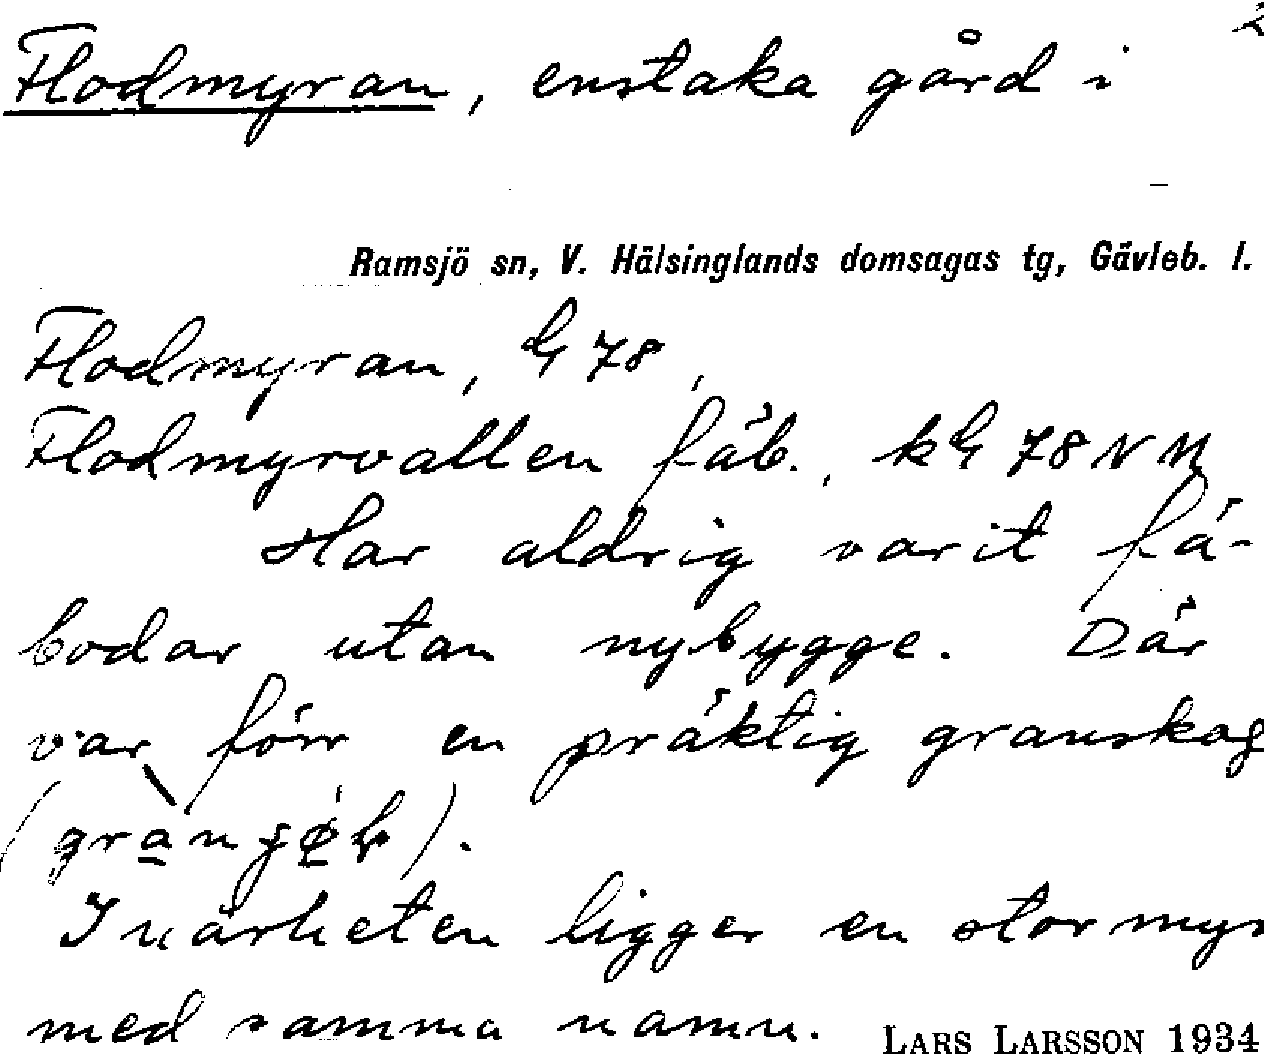 2
Flodmyran, enstaka gård i
Ramsjö sn, V. Hälsinglands domsagas tg, Gävleb. l.
Flodmyran, G 78,
Flodmyrvallen fäb., kG 78 NM
Har aldrig varit fä-
bodar utan nybygge. Där
var förr en präktig granskog
I närheten ligger en stor myr
med samma namn. LARS LARSSON 1934